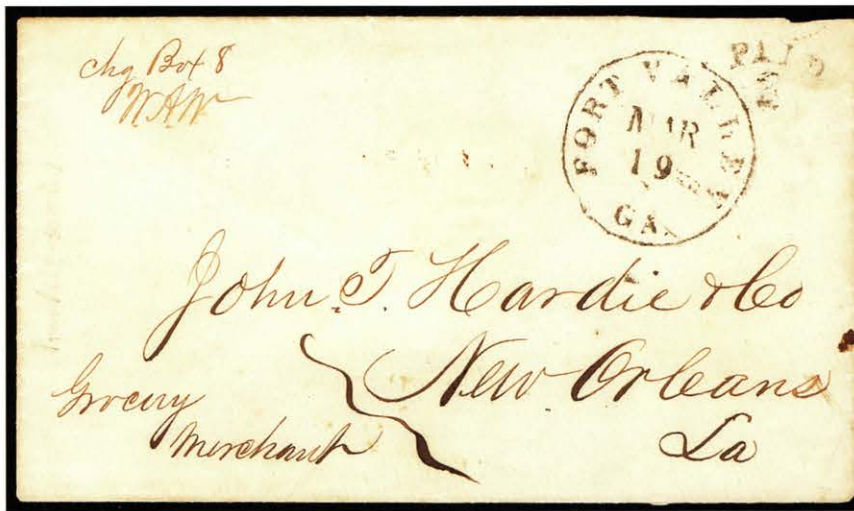 chg Box 8
W.A.W
PAID
FORT VALLEY
MAR
19
GA.
John. T. Hardie & Co
New Orleans
La
Grocery
Merchant